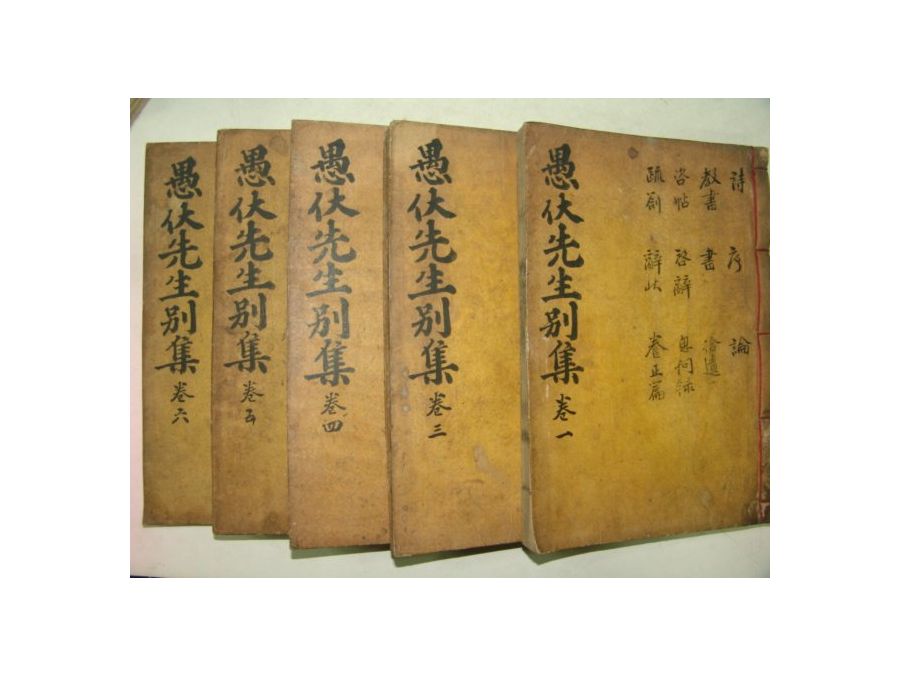 詩 序 論
教書 書 拾遺
咨帖 啓辭
疏箚 辭狀 養正篇
愚伏先生別集 卷一
愚伏先生別集 卷三
愚伏先生別集 卷四
愚伏先生別集 卷五
愚伏先生別集 卷六